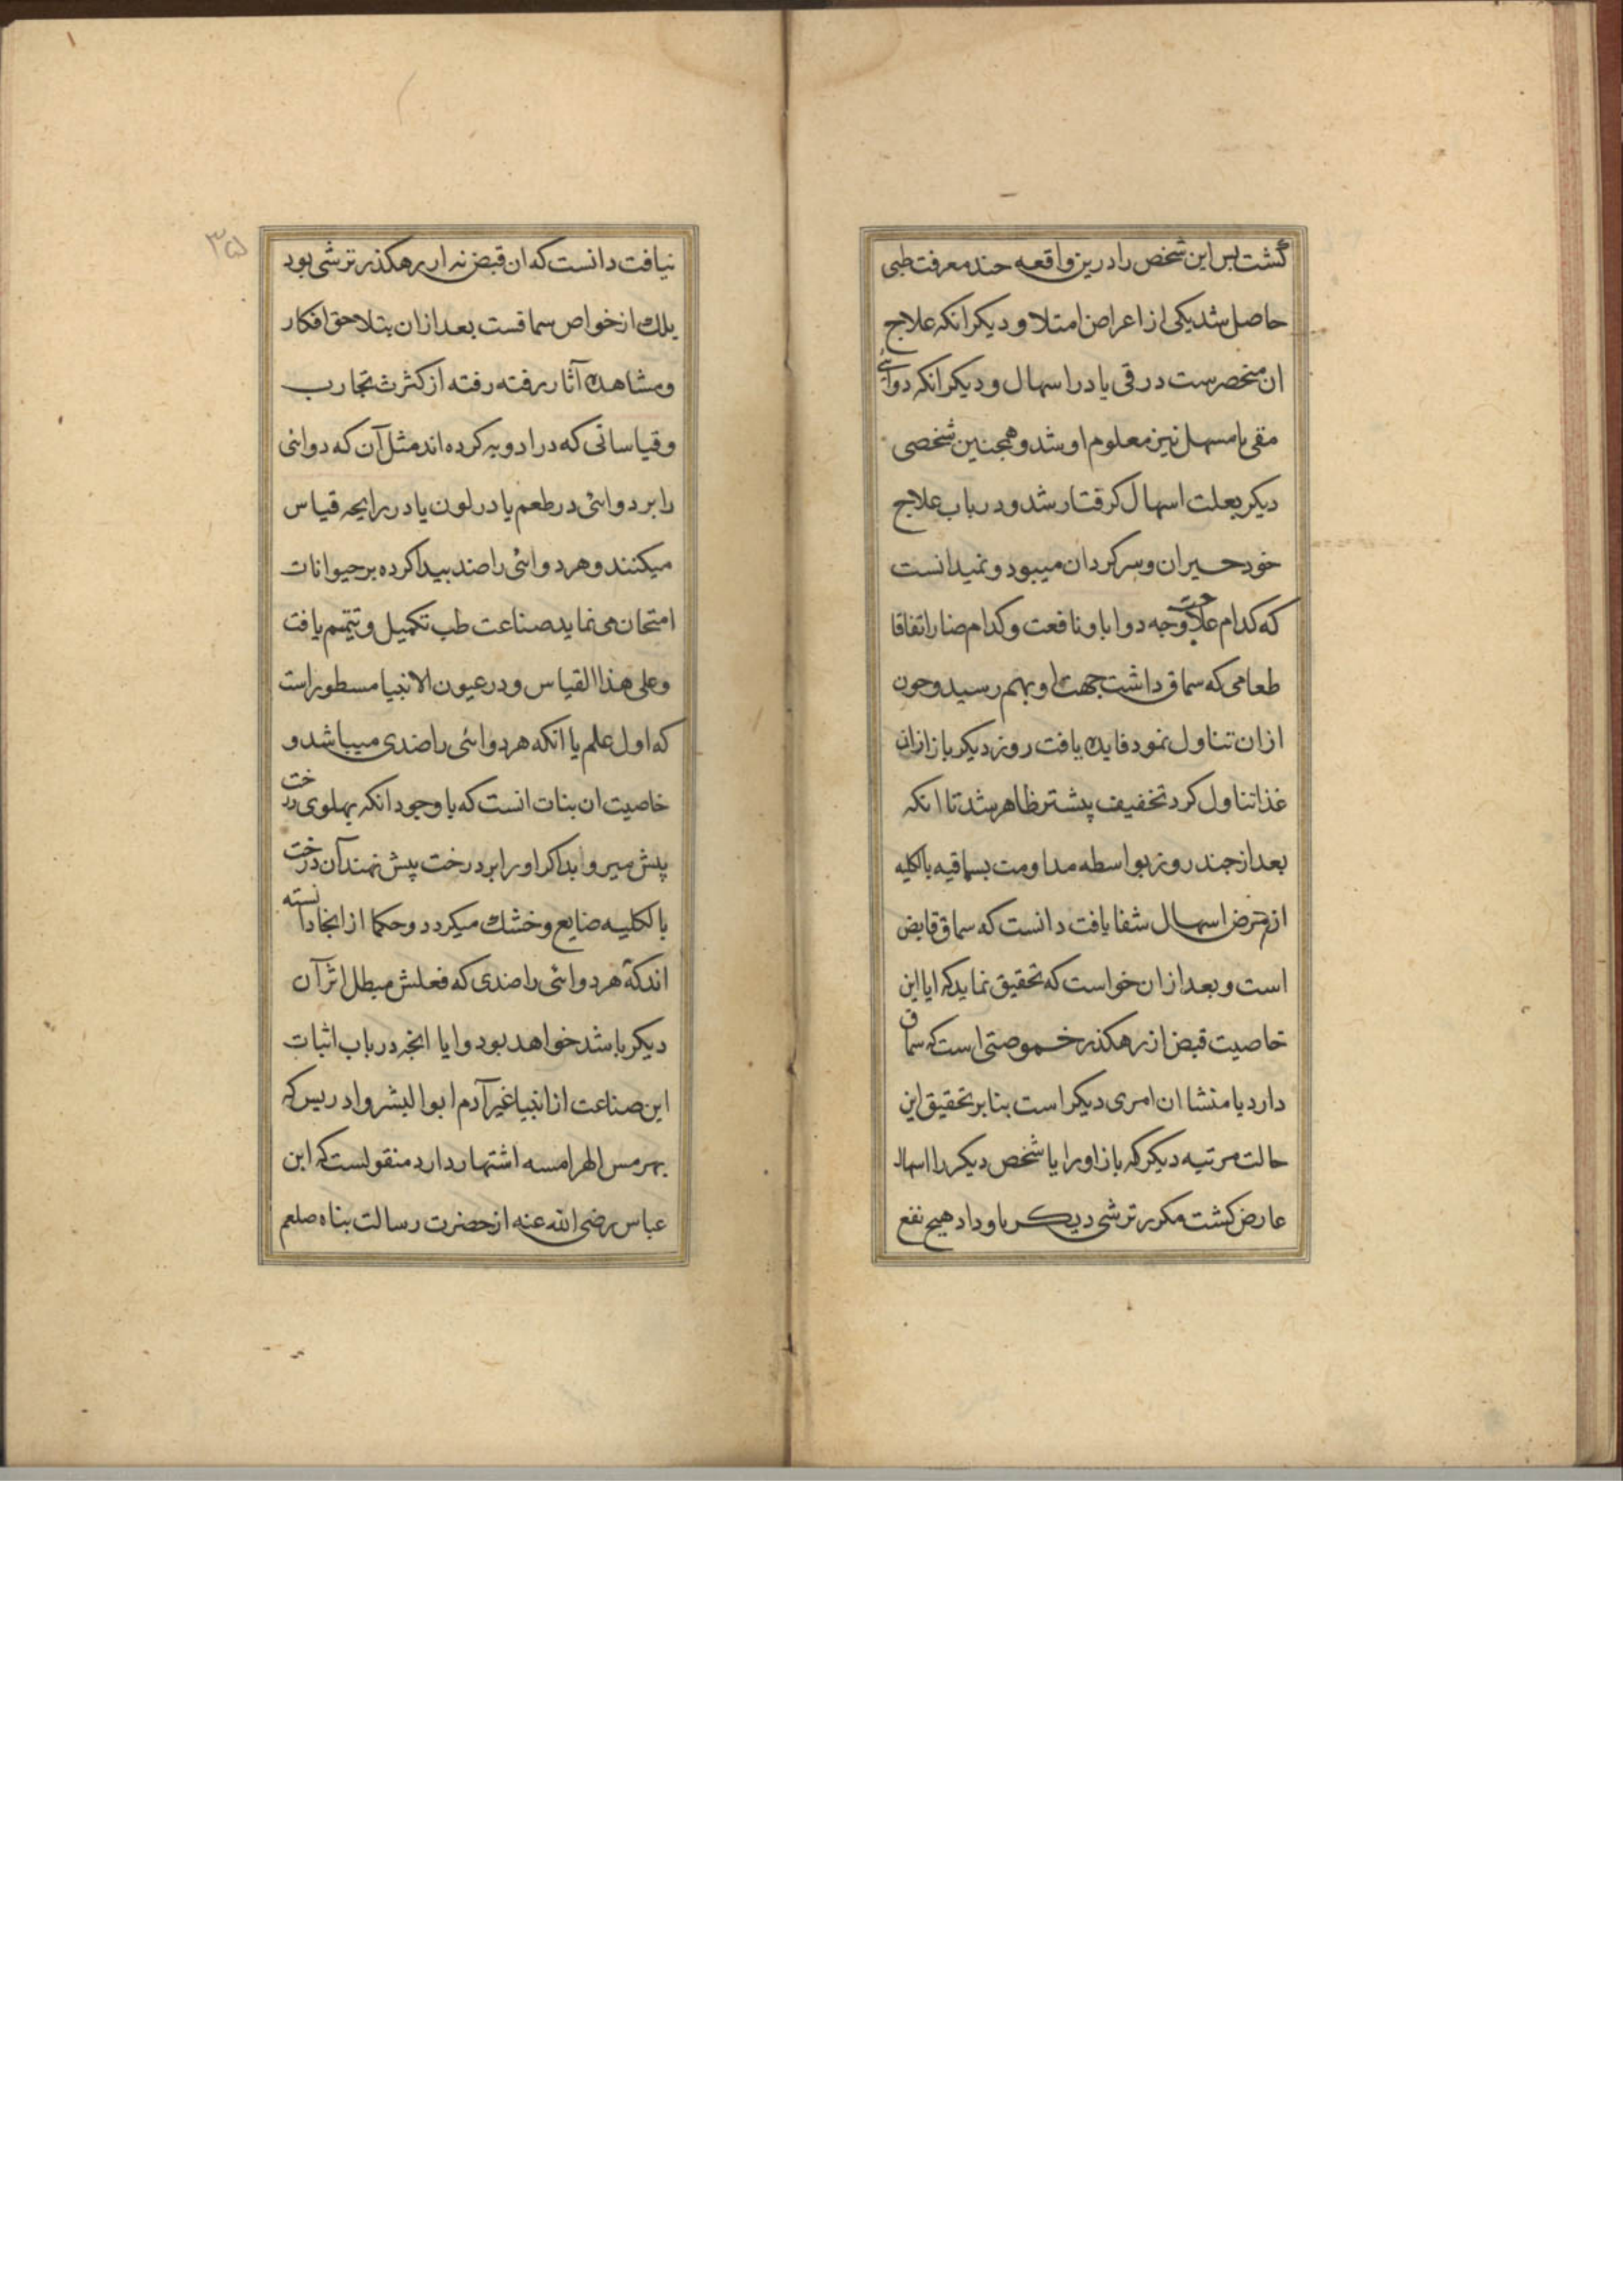 گشت بس این شخص را درین واقعه جند معرفت طبی
حاصل شد یکی از اعراض امتلا و دیکر انکه علاج
ان منحصرست در قی یا در اسهال و دیکر انکه دوائی
مقی یا مسهل نیز معلوم او شد و همجنین شخصی
دیکر بعلت اسهال کرفتار شد و در باب علاج
خود حیران و سرکردان میبود و نمیدانست
که کدام علاج وجه دوا با و نافعت و کدام ضار اتفاقا
طعامی که سماق داشت جهت او بهم رسید و جون
ازان تناول نمود فایده یافت روز دیکر باز ازان
غذا تناول کرد تخفیف پیشتر ظاهر شد تا انکه
بعد از جند روز بواسطه مداومت بسماقیه بالکلیه
از مرض اسهال شفا یافت دانست که سماق قابض
است و بعد ازان خواست که تحقیق نماید که ایا این
خاصیت قبض از رهکذر خصوصتی است که سماق
دارد یا منشا ان امری دیکر است بنابر تحقیق این
حالت مرتبه دیکر که باز او را یا شخص دیکر را اسهال
عارض کشت مکرر ترشی دیکر باو داد هیج نفع
نیافت دانست که ان قبض نه از رهکذر ترشی بود
بلک از خواص سماقست بعد ازان بتلاحق افکار
و مشاهده آثار رفته رفته از کثرت تجارب
و قیاساتی که در ادویه کرده اند مثل آن که دوائی
را بر دوائی در طعم یا در لون یا در رایحه قیاس
میکنند و هر دوائی را ضد بیدا کرده بر حیوانات
امتحان می نماید صناعت طب تکمیل و تتمیم یافت
و علی هذا القیاس و در عیون الانبیا مسطور است
که اول علم یا انکه هر دوائی را ضدی میباشد و
خاصیت ان بنات انست که با وجود انکه بهلوی درخت
پیش میر و ابد اکر او را بر درخت پیش نهند آن درخت
بالکلیه ضایع و خشک میکردد و حکما از انجا دانسته
اند که هر دوائی را ضدی که فعلش مبطل اثر آن
دیکر باشد خواهد بود و ایا انجه در باب اثبات
این صناعت از انبیا غیر آدم ابو البشر و ادریس که
بهرمس الهرامسه اشتهار دارد منقولست که ابن
عباس رضی الله عنه از حضرت رسالت بناه صلعم